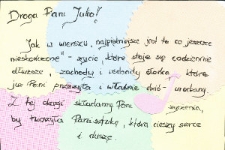 Droga Pani Julio!
Jak w wierszu, najpiękniejsze jest to co jeszcze
nieskończone" - życie, które staje się codziennie
dłuższe, zachody i wschody słońca które
już Pani przeżyła i właśnie dziś -
Z tej okazji składamy Pani życzenia,
by tworzyła Pani sztukę, która cieszy serce
i duszę.